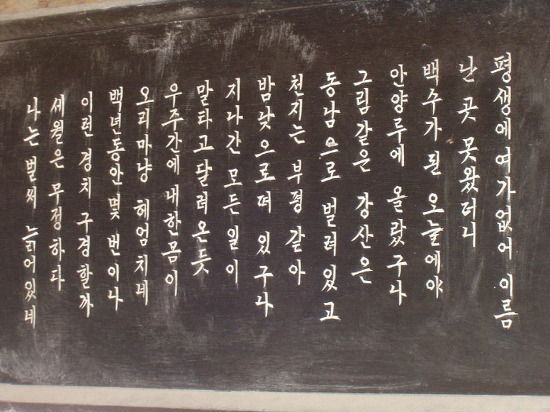 평생에 여가 없어 이름
난 곳 못왔더니
백수가 된 오늘에야
안양루에 올랐구나
그림 같은 강산은
동남으로 벌려있고
천지는 부평 같아
밤낮으로 떠 있구나
지나간 모든 일이
말타고 달려온듯
우주간에 내 한몸이
오리마냥 헤엄치네
백년동안 몇 번이나
이런 경치 구경할까
세월은 무정하다
나는 벌써 늙어있네